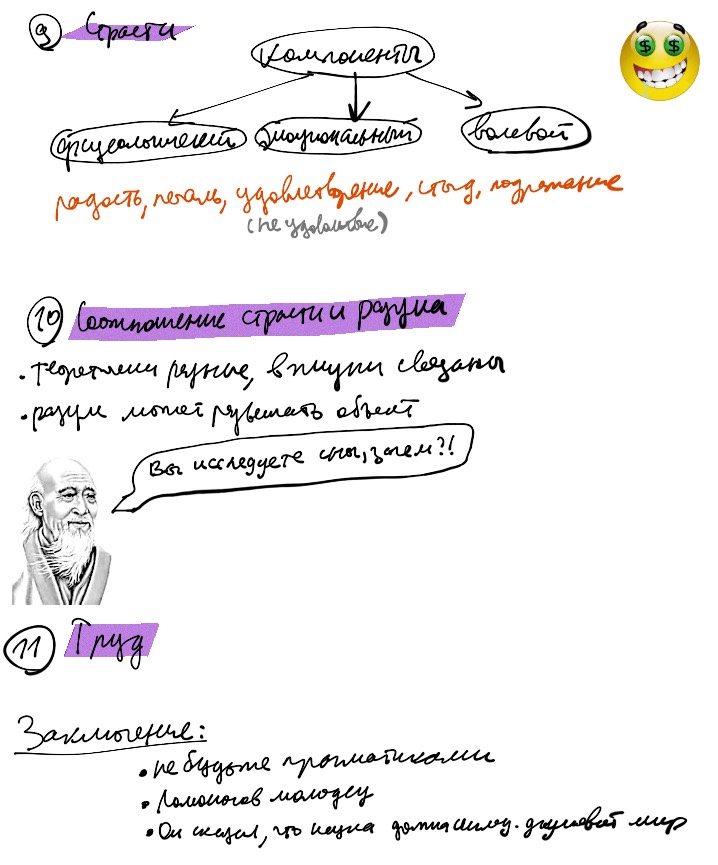 9 Страсти
Компоненты
физиологический эмоциональный волевой
радость, печаль, удовлетворение, стыд, подражание
(не удовольствие)
10 Соотношение страсти и разума
• теоретически разные, в жизни связаны
• разум может развешать объект
Вы исследуете сны, зачем?!
11 Труд
Заключение:
• не будьте прагматиками
• Ломоносов молодец
• Он сказал, что наука должна исслед. духовный мир